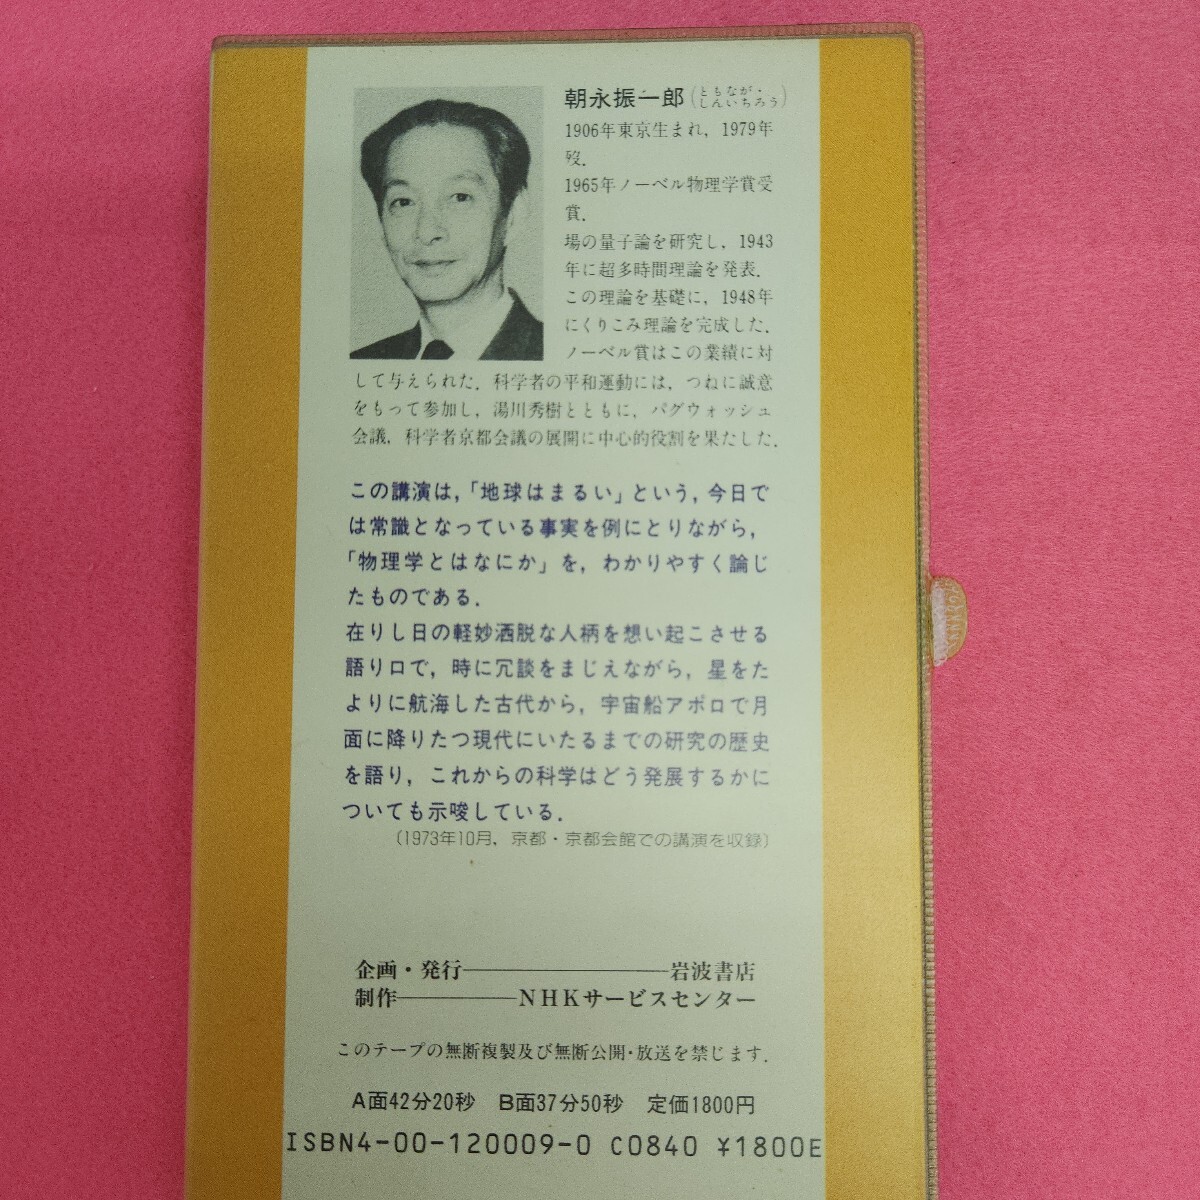 朝永振一郎(ともなが・しんいちろう)
1906年東京生まれ，1979年
歿．
1965年ノーベル物理学賞受
賞．
場の量子論を研究し，1943
年に超多時間理論を発表．
この理論を基礎に，1948年
にくりこみ理論を完成した．
ノーベル賞はこの業績に対
して与えられた．科学者の平和運動には，つねに誠意
をもって参加し，湯川秀樹とともに，パグウォッシュ
会議，科学者京都会議の展開に中心的役割を果たした．
この講演は，「地球はまるい」という，今日で
は常識となっている事実を例にとりながら，
「物理学とはなにか」を，わかりやすく論じ
たものである．
在りし日の軽妙洒脱な人柄を想い起こさせる
語り口で，時に冗談をまじえながら，星をた
よりに航海した古代から，宇宙船アポロで月
面に降りたつ現代にいたるまでの研究の歴史
を語り，これからの科学はどう発展するかに
ついても示唆している．
〔1973年10月，京都・京都会館での講演を収録〕
企画・発行―――――――岩波書店
制作――――NHKサービスセンター
このテープの無断複製及び無断公開・放送を禁じます．
A面42分20秒　B面37分50秒　定価1800円
ISBN4-00-120009-0 C0840 ¥1800E